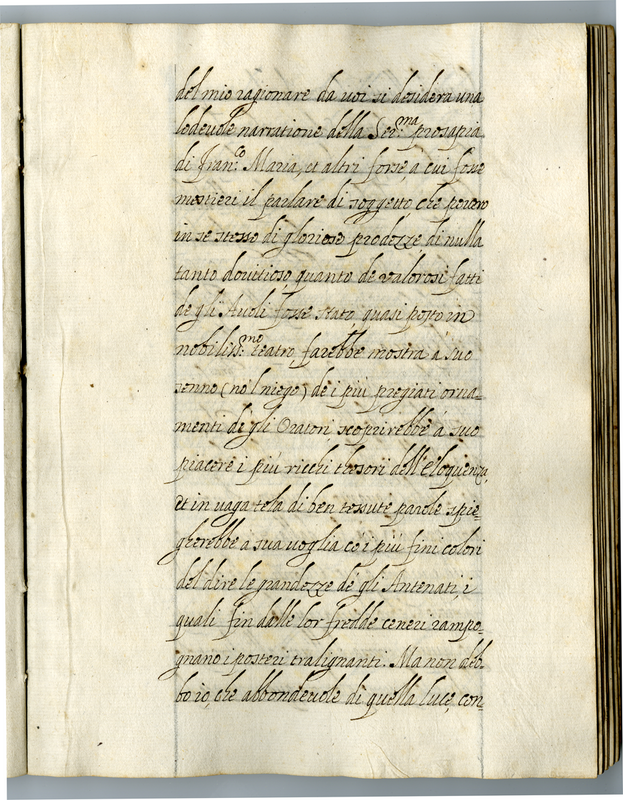 del mio ragionare da uoi si desidera una
lodeuole narratione della Ser.ma prosapia
di Fran.co Maria, et altri forse a cui fosse
mestieri il parlare di soggetto, che pouero
in se stesso di gloriose prodezze di nulla
tanto douitioso, quanto de valorosi fatti
de gli Auoli fosse stato, quasi posto in
nobiliss.mo teatro, farebbe mostra a suo
senno (no 'l niego) de i più pregiati orna-
menti de gli Oratori, scoprirebbe a suo
piacere i più ricchi thesori dell'eloquenza,
et in uaga tela di ben tessute parole spie-
gherebbe a sua uoglia co i più fini colori
del dire le grandezze de gli Antenati, i
quali fin dalle lor fredde ceneri rampo-
gnano i posteri tralignanti. Ma non deb-
bo io, che abbondeuole di quella luce, con-